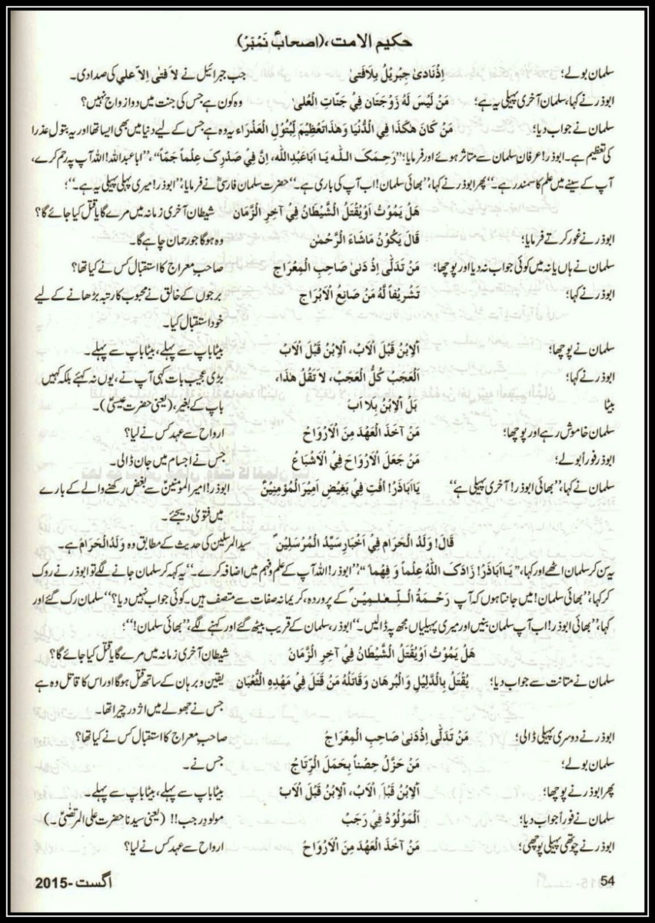 حکیم الامت، (اصحابؓ نمبر)
سلمان بولے؛ اِذْنَادیٰ جِبْرِیْلُ بِلَافَتیٰ جب جبرائیل نے لَا فَتیٰ اِلَّا عَلِی کی صدا دی۔
ابوذر نے کہا، سلمان آخری پہیلی یہ ہے؛ مَنْ لَیْسَ لَهٗ زَوْجَتَانِ فِیْ جَنَّاتِ الْعُلیٰ وہ کون ہے جس کی جنت میں دو ازواج نہیں؟
سلمان نے جواب دیا؛ مَنْ کَانَ هٰکَذَا فِی الدُّنْیَا وَهٰذَاتَعْظِیْمٌ لِبَتُوْلِ الْعَذْرَاء یہ وہ ہے جس کے لیے دنیا میں بھی ایسا تھا اور یہ بتول عذرا
کی تعظیم ہے۔ ابوذر! عرفان سلمان سے متاثر ہوئے اور فرمایا؛ ”رَحِمَکَ اللّٰہ یَا اَبَاعَبْدِاللّٰہ، اِنَّ فِیْ صَدْرِکَ عِلْماً جَمّاً“، ”ابا عبداللہ! اللہ آپ پہ رحم کرے،
آپ کے سینے میں علم کا سمندر ہے۔“ پھر ابوذر نے کہا؛ ”بھائی سلمان! اب آپ کی باری ہے۔“ حضرت سلمان فارسیؓ نے فرمایا؛ ”ابوذر! میری پہلی پہیلی یہ ہے۔“؛
هَلْ یَمُوْتُ اَوْیُقْتَلُ الشَّیْطَانُ فِیْ آخِرِ الزَّمَان شیطان آخری زمانہ میں مرے گا یا قتل کیا جائے گا؟
ابوذر نے غور کرتے فرمایا؛ قَالَ یَکُوْنُ مَاشَاءَ الرَّحْمٰن وہ ہو گا جو رحمان چاہے گا۔
سلمان نے ہاں یا نہ میں کوئی جواب نہ دیا اور پوچھا؛ مَنْ تَدَلّٰی اِذْ دَنیٰ صَاحِبِ الْمِعْرَاج صاحب معراج کا استقبال کس نے کیا تھا؟
ابوذر نے کہا؛ تَشْرِیْفاً لَّهٗ مَنْ صَانِعِ الْاَبْرَاج برجوں کے خالق نے محبوب کا رتبہ بڑھانے کے لیے
خود استقبال کیا۔
سلمان نے پوچھا؛ اَلْاِبْنُ قَبْلَ الْاَب، اَلْاِبْنُ قَبْلَ الْاَب بیٹا باپ سے پہلے، بیٹا باپ سے پہلے۔
ابوذر نے کہا؛ اَلْعَجَبُ کُلُّ الْعَجَبِ، لَا تَقُلْ هٰذَا، بڑی عجیب بات کہی آپ نے، یوں نہ کہئے بلکہ کہیں
بیٹا بَلْ اَلْاِبْن بِلَا اَب باپ کے بغیر، (یعنی حضرت عیسیٰ)۔
سلمان خاموش رہے اور پوچھا؛ مَنْ آخَذَ الْعَهْدَ مِنَ الْاَرْوَاح ارواح سے عہد کس نے لیا؟
ابوذر فوراً بولے؛ مَنْ جَعَلَ الْاَرْوَاحَ فِی الْاَشْبَاح جس نے اجسام میں جان ڈالی۔
سلمان نے کہا؛ ”بھائی ابوذر! آخری پہیلی ہے“ یَااَبَاذَرْ! اَفْتِ فِیْ بَغِیْضِ اَمِیْرِ الْمُؤْمِنِیْنَ ابوذر! امیر المومنین سے بغض رکھنے والے کے بارے
میں فتویٰ دیجئے
قَالَ! وَلَدُ الْحَرَام فِیْ اَخْبَارِ سَیِّدِ الْمُرْسَلِیْن سید المرسلین کی حدیث کے مطابق وہ وَلَدُ الْحَرَام ہے۔
یہ سن کر سلمان اٹھے اور کہا، ”یَا اَبَاذَر! زَادَکَ اللّٰہُ عِلْماً وَ فَهْما“؛ ”ابوذر! اللہ آپ کے علم و فہم میں اضافہ کرے۔“ یہ کہہ کر سلمان جانے لگے تو ابوذر نے روک
کر کہا؛ ”بھائی سلمان! میں جانتا ہوں کہ آپ رَحْمَةُ لِّلْعٰلَمِیْن کے پروردہ، کریمانہ صفات سے متصف ہیں۔ کوئی جواب نہیں دیا؟“ سلمان رک گئے اور
کہا؛ ”بھائی ابوذر! اب آپ سلمان بنیں اور میری پہیلیاں مجھ پہ ڈالیں۔“ ابوذر، سلمان کے قریب بیٹھ گئے اور کہنے لگے؛ ”بھائی سلمان!“؛
هَلْ یَمُوْتُ اَوْیُقْتَلُ الشَّیْطَانُ فِیْ آخِرِ الزَّمَان شیطان آخری زمانہ میں مرے گا یا قتل کیا جائے گا؟
سلمان نے متانت سے جواب دیا؛ یُقْتَلُ بِالدَّلِیْلِ وَالْبُرْهَان وَقَاتِلُهٗ مَنْ قَتَلَ فِیْ مَهْدِهِ الثُّعْبَان یقین و برہان کے ساتھ قتل ہوگا اور اس کا قاتل وہ ہے
جس نے جھولے میں اژدر چیرا تھا۔
ابوذر نے دوسری پہیلی ڈالی؛ مَنْ تَدَلّٰی اِذْدَنیٰ صَاحِبِ الْمِعْرَاج صاحب معراج کا استقبال کس نے کیا تھا؟
سلمان بولے؛ مَنْ حِصْناً بِحَمَلِ الرِّتَاج جس نے۔
پھر ابوذر نے پوچھا؛ اَلْاِبْنُ قَبْلَ الْاَب، اَلْاِبْنُ قَبْلَ الْاَب بیٹا باپ سے پہلے، بیٹا باپ سے پہلے۔
سلمان نے فوراً جواب دیا؛ اَلْمَوْلُوْدُ فِیْ رَجَبْ مولود رجب!! (یعنی سیدنا حضرت علی المرتضیٰؓ۔)
ابوذر نے چوتھی پہیلی پوچھی؛ مَنْ آخَذَ الْعَهْدَ مِنَ الْاَرْوَاح ارواح سے عہد کس نے لیا؟
54 اگست-2015